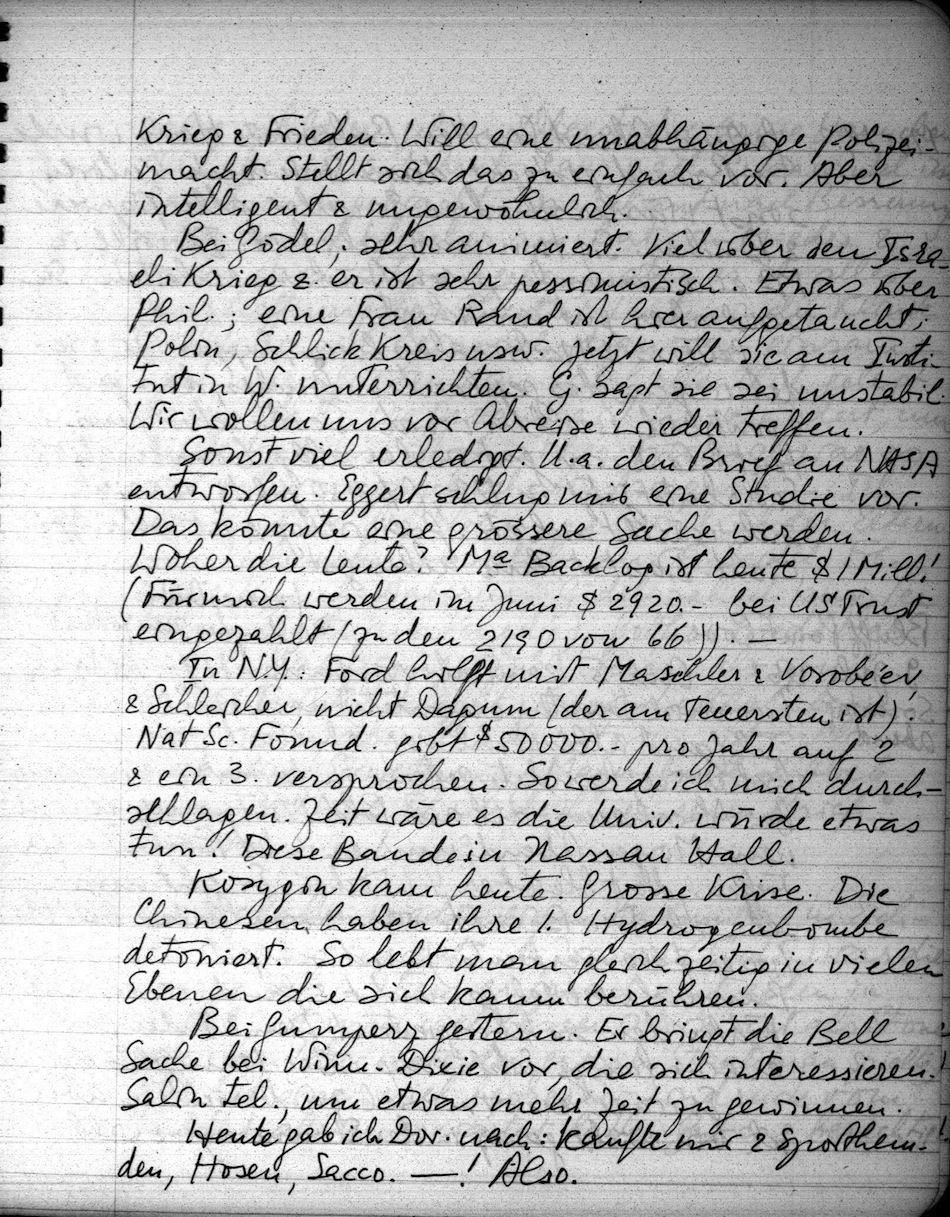 Krieg & Frieden. Will eine unabhängige Polizei-
macht. Stellt sich das zu einfach vor. Aber
intelligent & ungewöhnlich.
Bei Gödel; sehr animiert. Viel über den Isra-
eli Krieg & er ist sehr pessimistisch. Etwas über
Phil.; eine Frau Rand ist hier aufgetaucht;
Polin, Schlick Kreis usw. Jetzt will sie am Insti-
tut in W. unterrichten. G. sagt sie sei unstabil.
Wir wollen uns vor Abreise wieder treffen.
Sonst viel erledigt. U.a. den Brief an NASA
entworfen. Eggert schlug mir eine Studie vor.
Das könnte eine grössere Sache werden.
Woher die Leute? Ma Backlog ist heute $ 1 Mill.!
(Für mich werden im Juni $ 2920.- bei US Trust
eingezahlt (zu den 2190 vom 66)). —
In N.Y.: Ford hilft mit Maschler & Vorobéev,
& Schleicher, nicht Dagum (der am teuersten ist).
Nat Sc. Found. gibt $ 50000.- pro Jahr auf 2
& ein 3. versprochen. So werde ich mich durch-
schlagen. Zeit wäre es die Univ. würde etwas
tun! Diese Bande in Nassau Hall.
Kosygin kam heute. Grosse Krise. Die
Chinesen haben ihre 1. Hydrogenbombe
detoniert. So lebt man gleichzeitig in vielen
Ebenen die sich kaum berühren.
Bei Gumperz gestern. Er bringt die Bell
Sache bei Winn-Dixie vor, die sich interessieren.
Salin tel., um etwas mehr Zeit zu gewinnen.
Heute gab ich Dor. nach: kaufte mir 2 Sporthem-
den, Hosen, Sacco. —! Also.